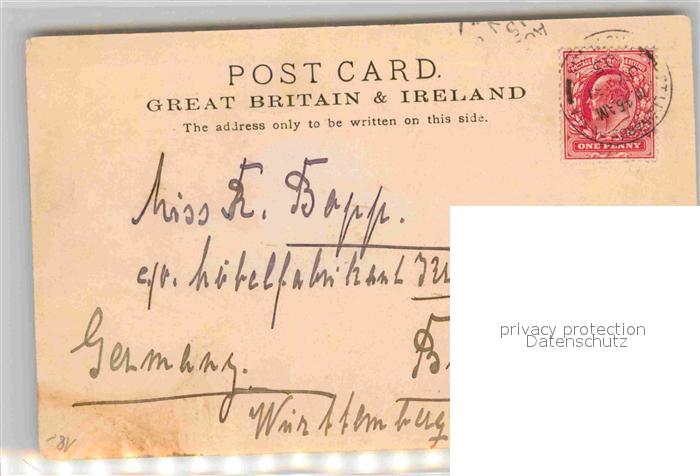 POST CARD.
GREAT BRITAIN & IRELAND
The address only to be written on this side.
ONE PENNY
Miss K. Bopp.
c/o. Möbelfabrikant
Germany.
Württemberg
privacy protection
Datenschutz